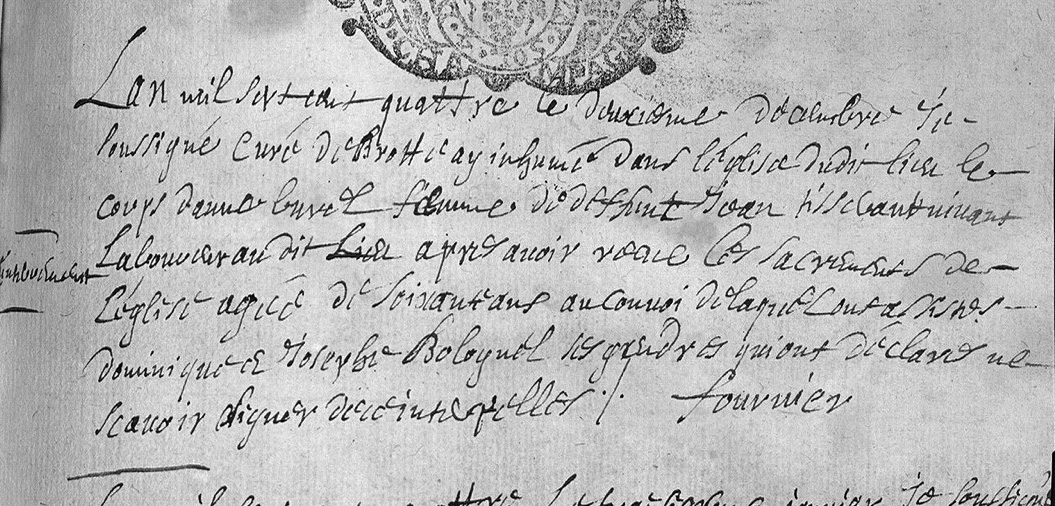 D. CHAMPAGNE
Lan mil sept cent quattre le deuxieme decembre Je
soussigné Curé de Brotte ay inhumé dans léglise dudit lieu le
corps danne femme de deffunt Jean vivant
Laboureur au dit lieu apres avoir receu les sacrements de
Léglise agéé de soixante ans au convoi de laquel ont assistes
dominique et Josephe Bolognel ses gendres qui ont déclarés ne
scavoir signer de ce interpelles ./. fournier
Enterrement
Je soussigné